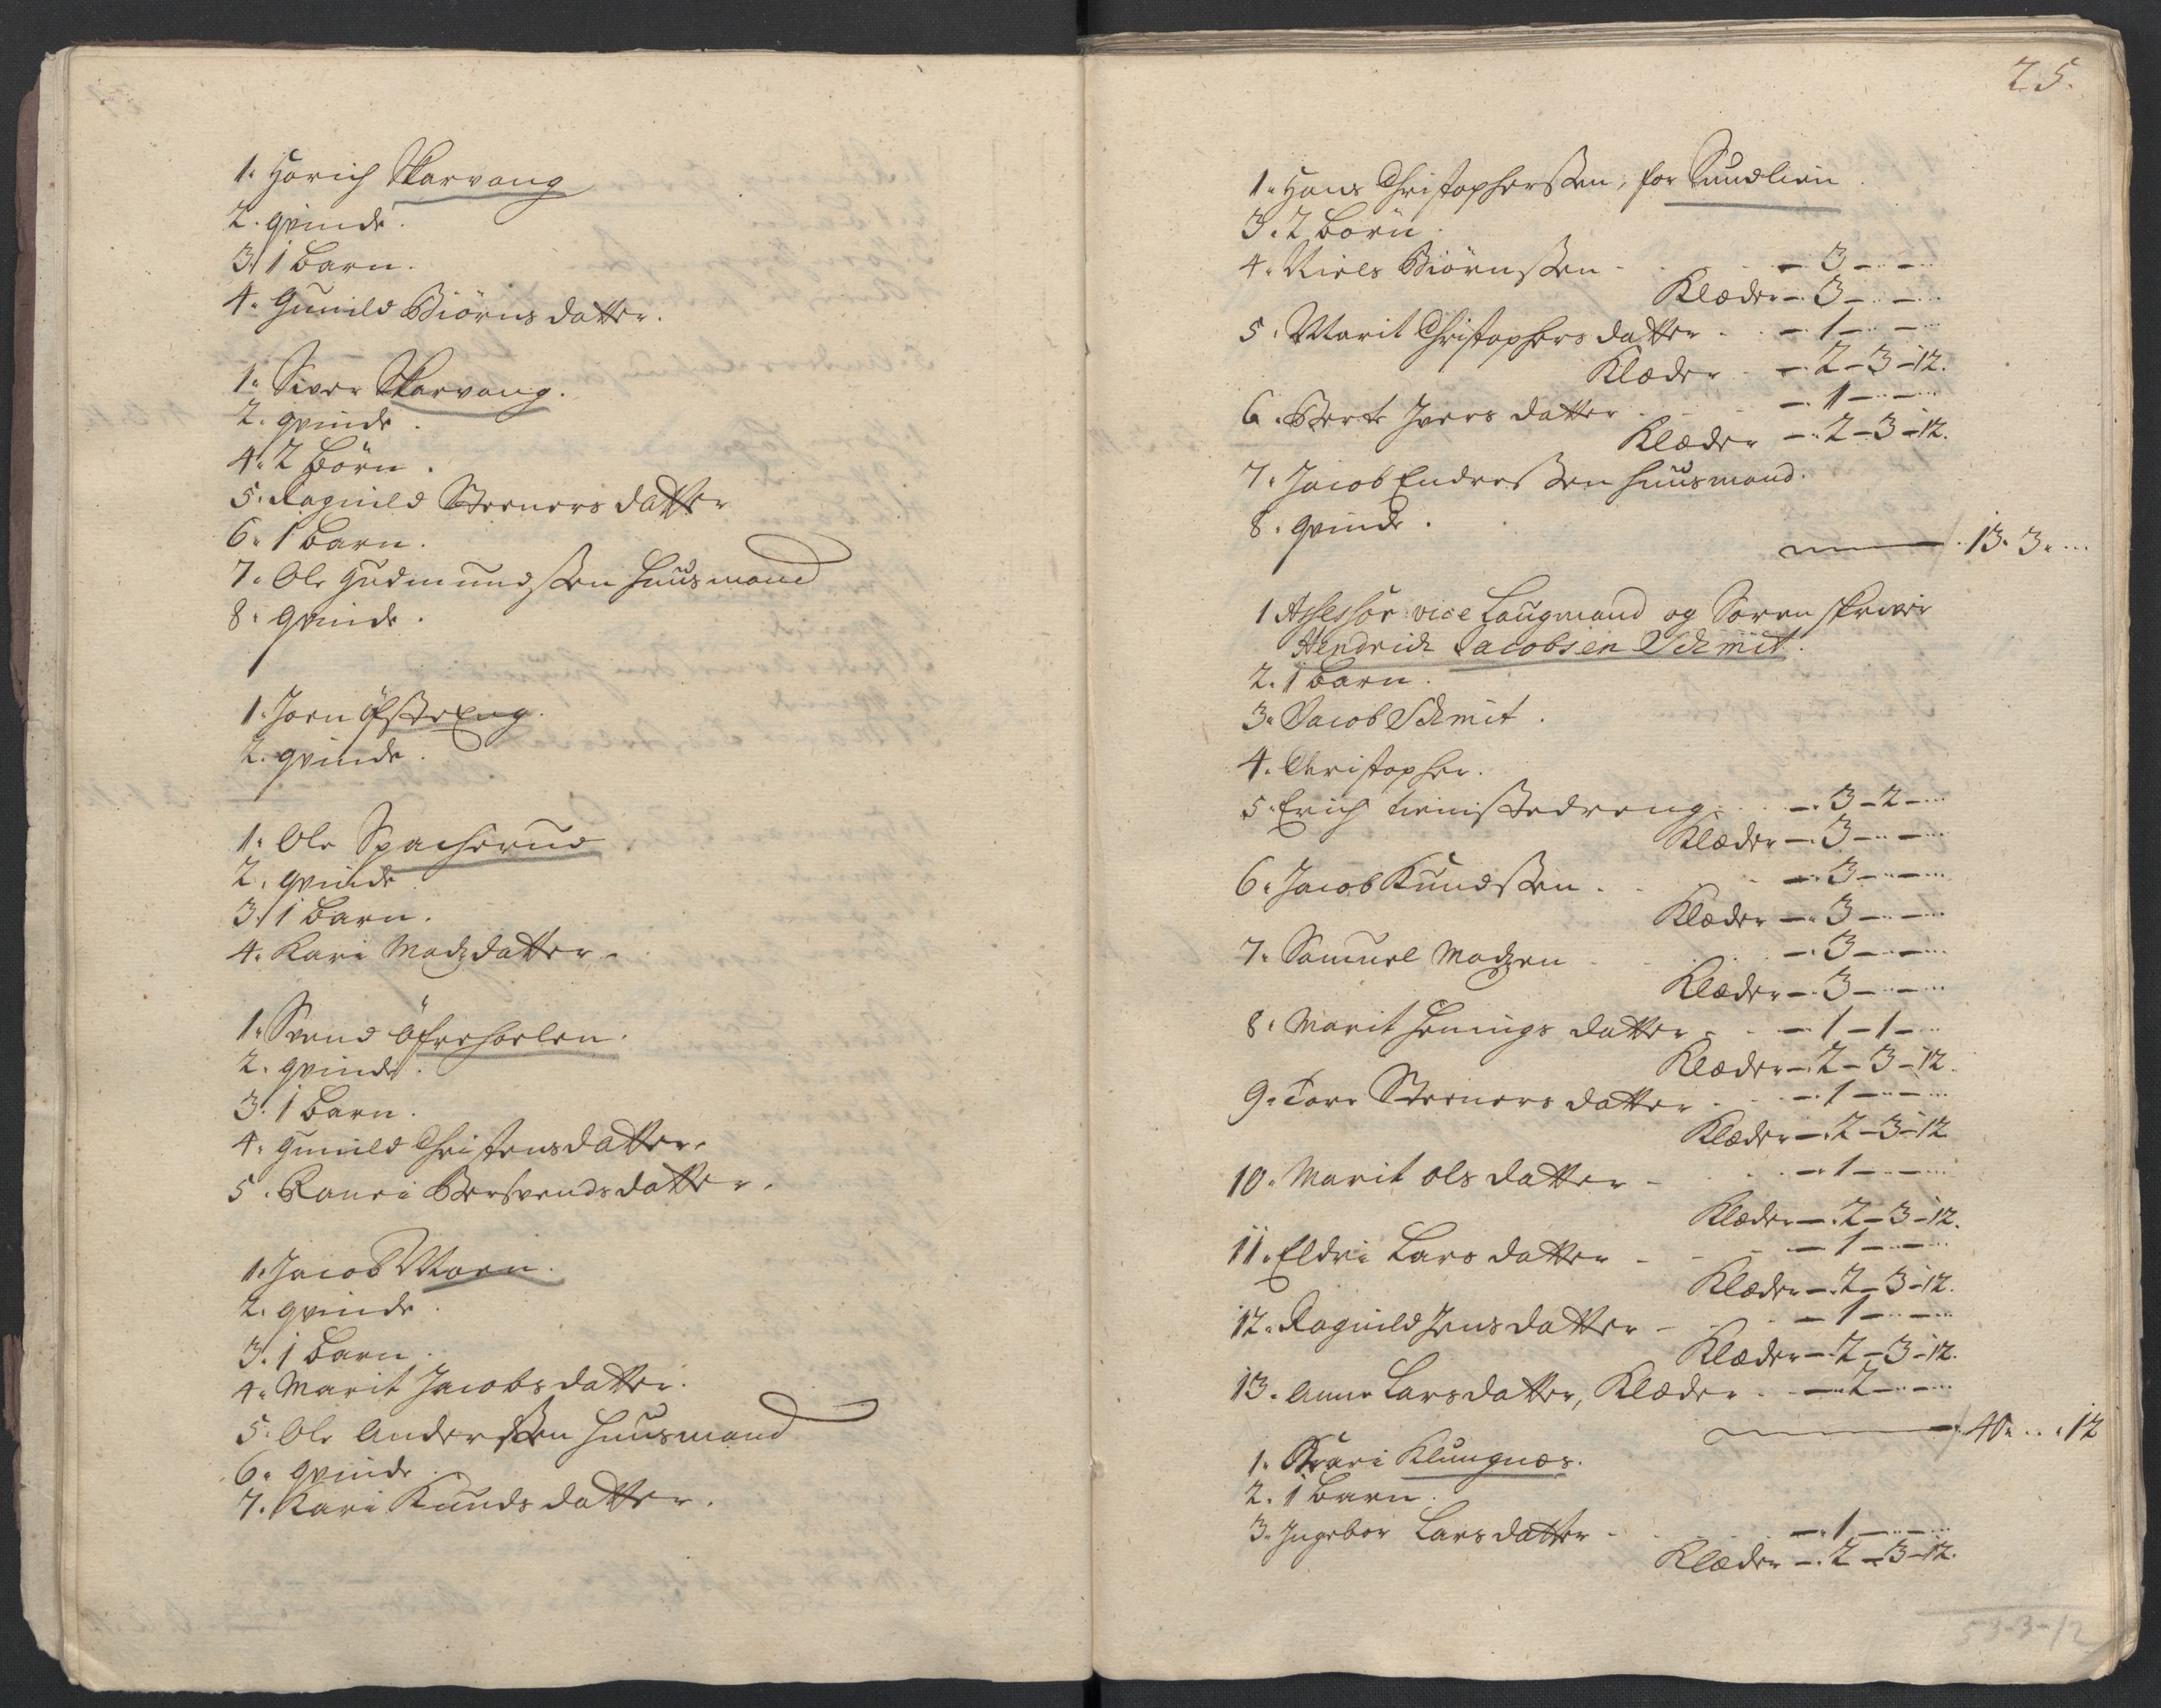 1. Hörich Skarvang
2. qvinde.
3. 1 barn.
4. Gunild Biörns datter.
1. Siver Skarvang.
2. qvinde.
4. 2 börn.
5. Ragnild Steners datter
6. 1 barn.
7. Ole Gudmundssen huusmand
8. qvinde.
1. Joen Öfsteeng.
2. qvinde.
1. Ole Spacherud
2. qvinde
3. 1 barn.
4. Kari Madzdatter.
1. Svend Öfrehoelen.
2. qvinde.
3. 1 barn.
4. Gunild Christensdatter.
5. Ranei Bersvendsdatter.
1. Jacob Moen.
2. qvinde.
3. 1 barn.
4. Marit Jacobsdatter.
5. Ole Anderssen huusmand
6. qvinde.
7. Kari Knuds datter.
25.
1. Hans Christopherssen, for Sundlien.
3. 2 börn.
4. Niels Biörnssen - - 3 - -
Klæder - 3 - -
5. Marit Christophers datter - - 1 - -
Klæder - 2 - 3 - 12.
6. Berte Ivers datter - - 1 - -
Klæder - 2 - 3 - 12.
7. Jacob Endressen huusmand.
8. qvinde.
13. 3. ...
1 Assessor vice Laugmand og Soren skriver
Hendrich Jacobsen Schmit.
2. 1 barn.
3. Jacob Schmit.
4. Christopher.
5. Erich tienistedreng - - 3 - 2 -
Klæder - 3 - -
6. Jacob Knudssen - - 3 - -
Klæder - 3 - -
7. Samuel Madzen - - 3 - -
Klæder - 3 - -
8. Marit Hemings datter - - 1 - 1 -
Klæder - 2 - 3 - 12.
9. Tore Steners datter - - 1 - -
Klæder - 2 - 3 - 12
10. Marit Ols datter - - 1 - -
Klæder - 2 - 3 - 12.
11. Eldri Lars datter - - 1 - -
Klæder - 2 - 3 - 12.
12. Ragnild Jens datter - - 1 - -
Klæder - 2 - 3 - 12.
13. Anne Larsdatter, Klæder - - 2 - -
40. .. 12
1. Kari Klungnæs.
2. 1 barn.
3. Ingebor Larsdatter - - 1 - -
Klæder - 2 - 3 - 12.
53-3-12